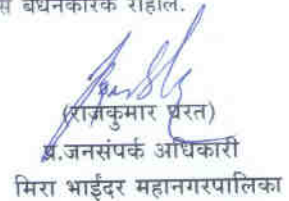 स बंधनकारक राहील.
(राजकुमार घरत)
प्र.जनसंपर्क अधिकारी
मिरा भाईंदर महानगरपालिका